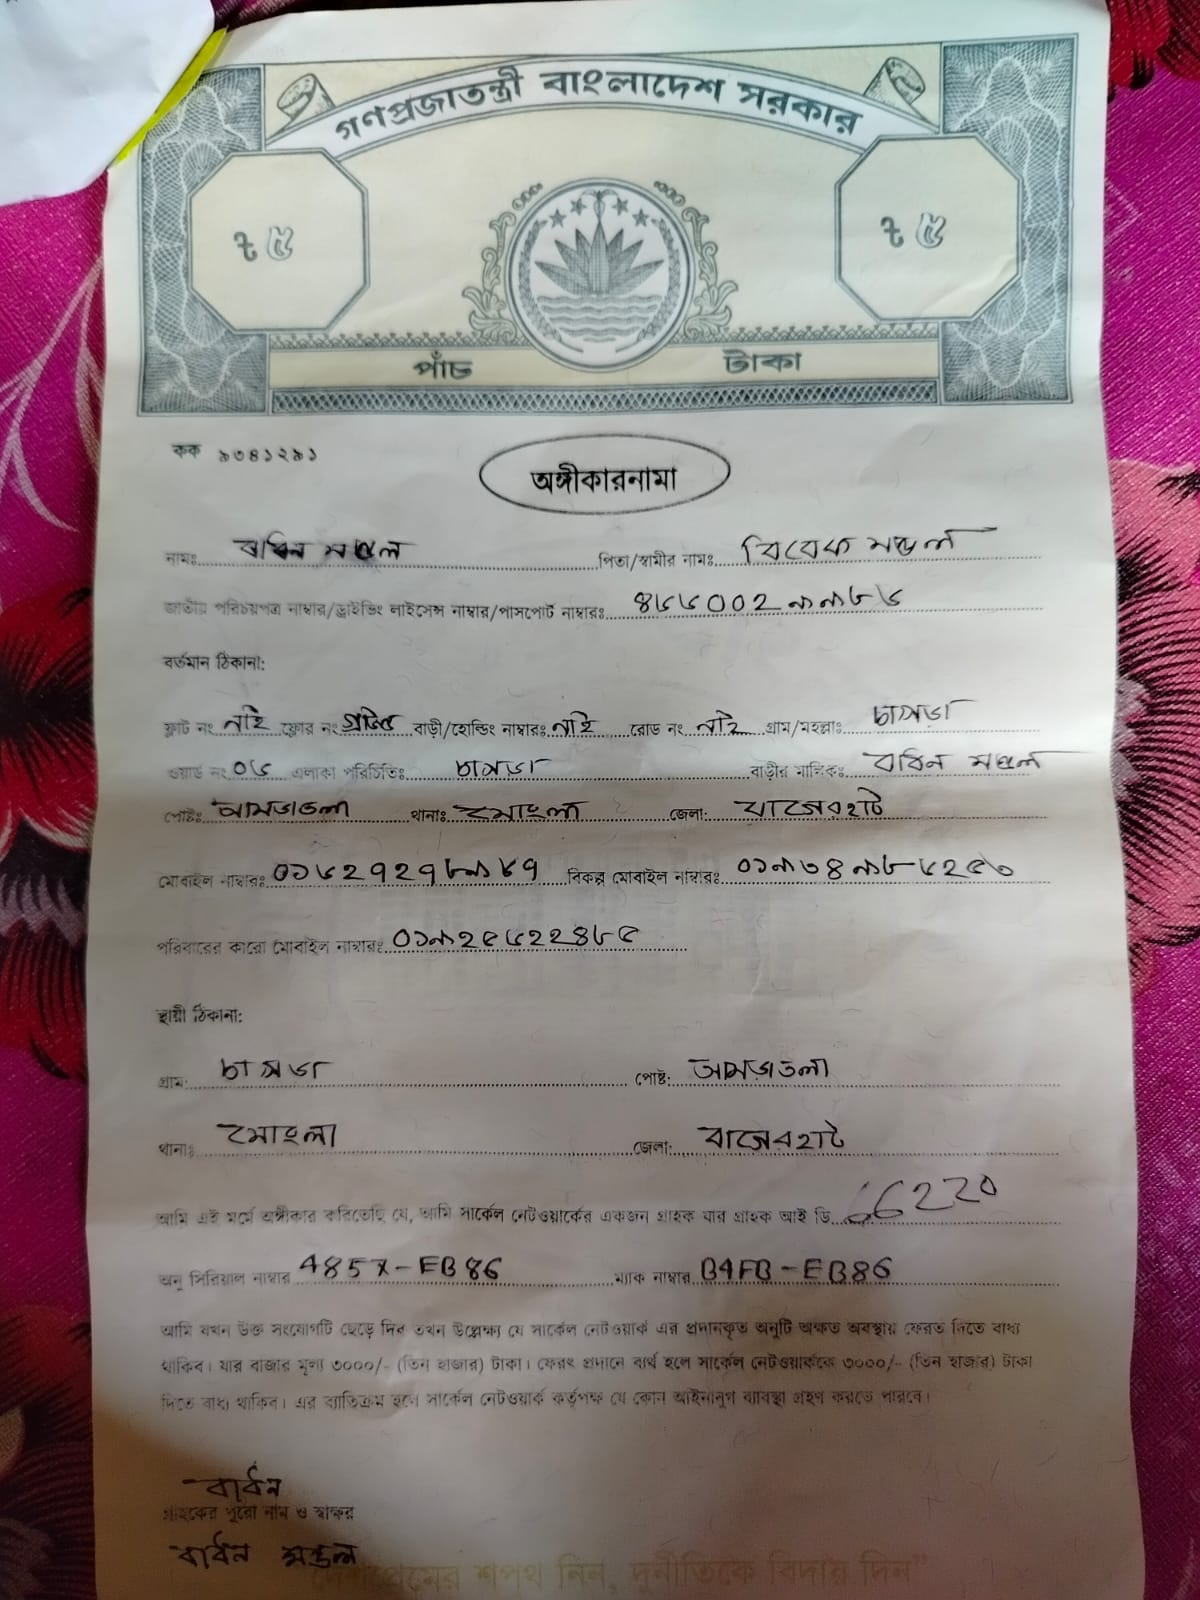 গণপ্রজাতন্ত্রী বাংলাদেশ সরকার
৳ ৫ ৳ ৫
পাঁচ টাকা
কক ৯৩৪১২৯১
অঙ্গীকারনামা
নামঃ মন্ডল পিতা/স্বামীর নামঃ বিবেক মন্ডল
জাতীয় পরিচয়পত্র নাম্বার/ড্রাইভিং লাইসেন্স নাম্বার/পাসপোর্ট নাম্বারঃ
বর্তমান ঠিকানা:
ফ্লাট নং নাই ফ্লোর নং বাড়ী/হোল্ডিং নাম্বারঃ নাই রোড নং নাই গ্রাম/মহল্লাঃ
ওয়ার্ড নং ০৬ এলাকা পরিচিতিঃ বাড়ীর মালিকঃ মন্ডল
পোষ্টঃ আমড়াতলা থানাঃ মোংলা জেলা: বাগেরহাট
মোবাইল নাম্বারঃ বিকল্প মোবাইল নাম্বারঃ
পরিবারের কারো মোবাইল নাম্বারঃ
স্থায়ী ঠিকানা:
গ্রাম: পোষ্ট: আমড়াতলা
থানাঃ মোংলা জেলা: বাগেরহাট
আমি এই মর্মে অঙ্গীকার করিতেছি যে, আমি সার্কেল নেটওয়ার্কের একজন গ্রাহক যার গ্রাহক আই ডি 66220
অনু সিরিয়াল নাম্বার 485X-EB86 ম্যাক নাম্বার B4FB-EB86
আমি যখন উক্ত সংযোগটি ছেড়ে দিব তখন উল্লেক্ষ্য যে সার্কেল নেটওয়ার্ক এর প্রদানকৃত অনুটি অক্ষত অবস্থায় ফেরত দিতে বাধ্য
থাকিব। যার বাজার মূল্য ৩০০০/- (তিন হাজার) টাকা। ফেরৎ প্রদানে ব্যর্থ হলে সার্কেল নেটওয়ার্ককে ৩০০০/- (তিন হাজার) টাকা
দিতে বাধ্য থাকিব। এর ব্যাতিক্রম হলে সার্কেল নেটওয়ার্ক কর্তৃপক্ষ যে কোন আইনানুগ ব্যাবস্থা গ্রহণ করতে পারবে।
গ্রাহকের পুরো নাম ও স্বাক্ষর
মন্ডল
দেশপ্রেমের শপথ নিন, দুর্নীতিকে বিদায় দিন"